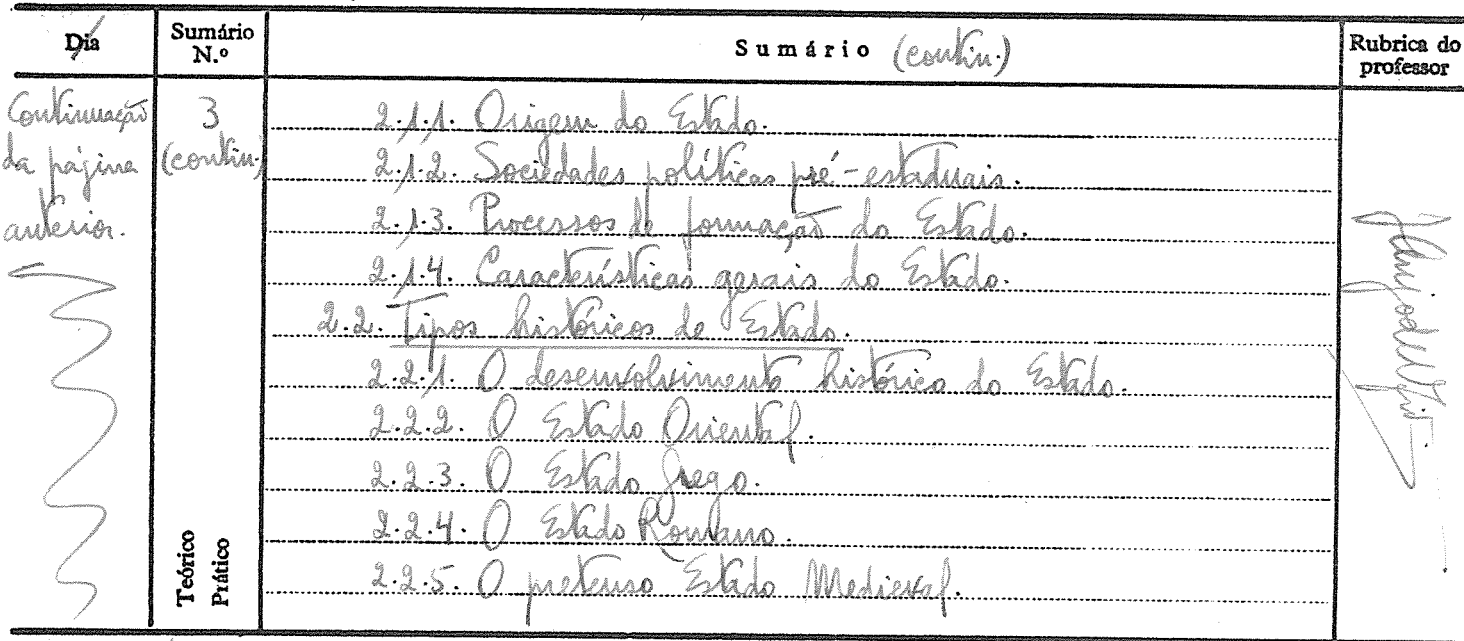 Dia
Sumário N.º
Sumário (contin.)
Rubrica do professor
Continuação da página anterior.
3 (contin.)
2.1.1. Origem do Estado.
2.1.2. Sociedades políticas pré-estaduais.
2.1.3. Processos de formação do Estado.
2.1.4. Características gerais do Estado.
2.2. Tipos históricos de Estado.
2.2.1. O desenvolvimento histórico do Estado.
2.2.2. O Estado Oriental.
2.2.3. O Estado Grego.
2.2.4. O Estado Romano.
2.2.5. O pretenso Estado Medieval.
Teórico
Prático